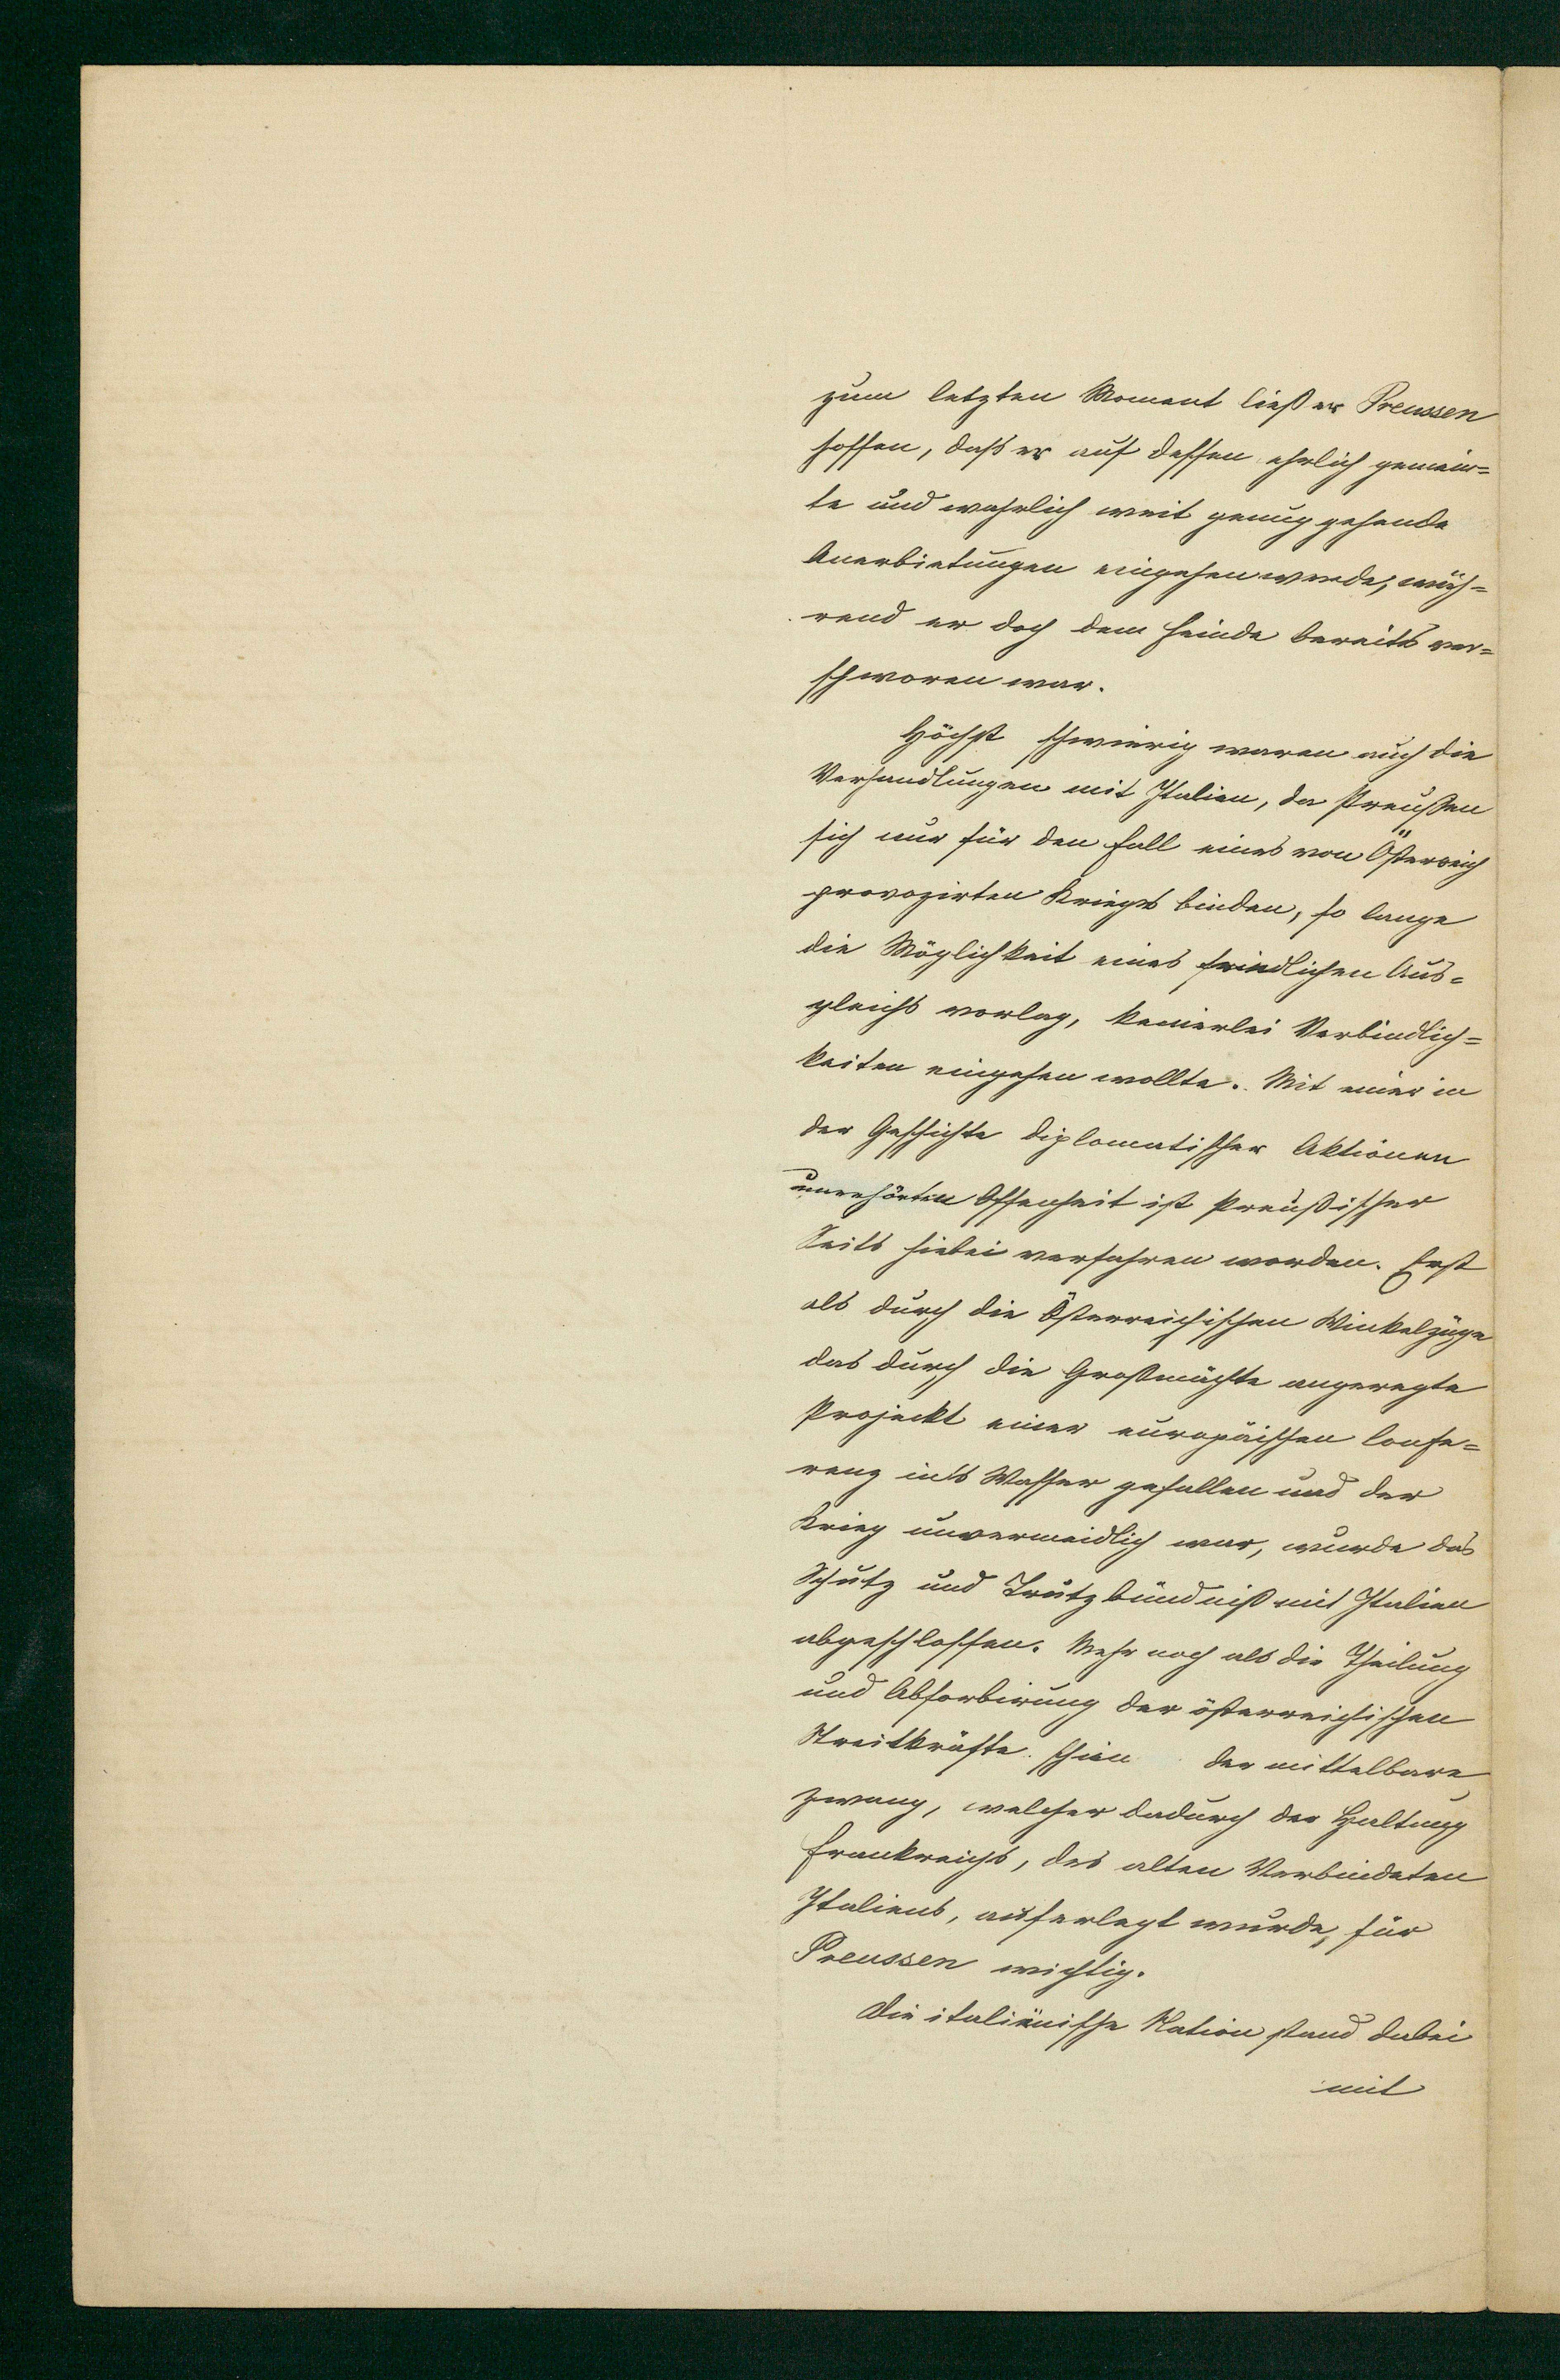 zum letzten Moment ließ er Preussen
hoffen, daß er auf dessen ehrlich gemein=
te und wahrlich weit genug gehende
Anerbietungen eingehen werde, wäh=
rend er doch dem Feinde bereits ver=
schworen war.
Höchst schwierig waren auch die
Verhandlungen mit Italien, da Preußen
sich nur für den Fall eines von Österreich
provozirten Krieges binden, so lange
die Möglichkeit eines friedlichen Aus=
gleichs vorlag, keinerlei Verbindlich=
keiten eingehen wollte. Mit einer in
der Geschichte diplomatischer Aktionen
unerhörten Offenheit ist Preußischer
Seits hiebei verfahren worden. Erst
als durch die Österreichischen Winkelzüge
das durch die Großmächte angeregte
Projekt einer europäischen Confe=
renz in's Wasser gefallen und der
Krieg unvermeidlich war, wurde das
Schutz und Trutzbündniß mit Italien
abgeschlossen. Mehr noch als die Theilung
und Absorbirung der österreichischen
Streitkräfte schien der mittelbare
Zwang, welcher dadurch der Haltung
Frankreichs, des alten Verbündeten
Italiens, auferlegt wurde, für
Preussen wichtig.
Die italiänische Nation stand dabei
mit